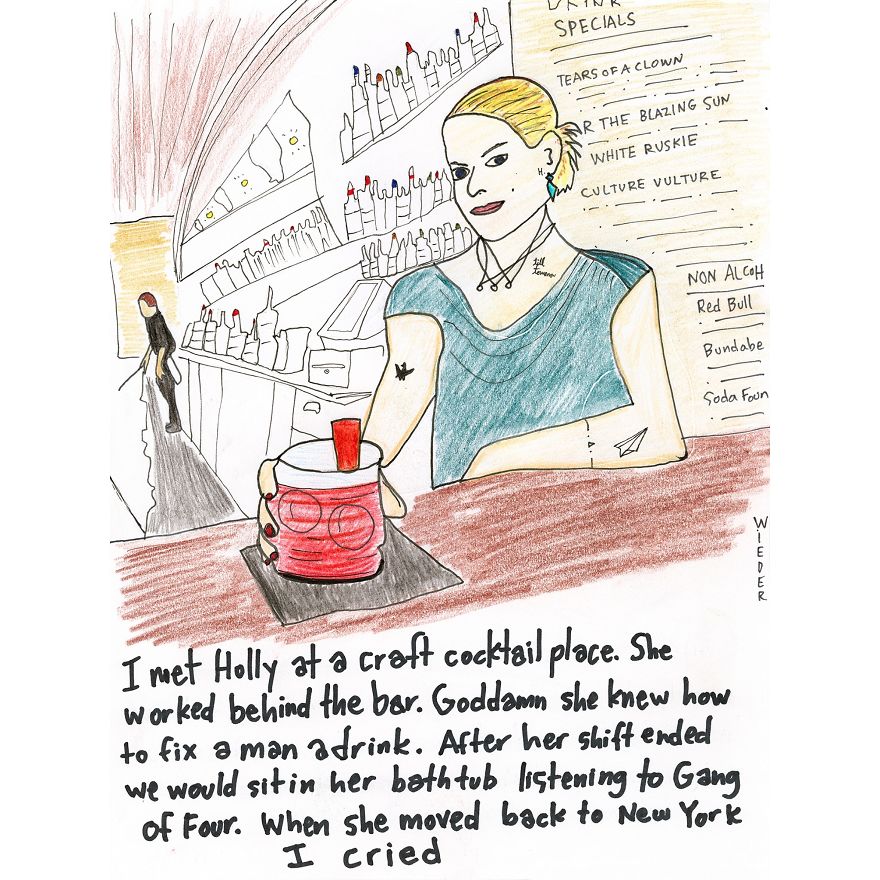 DRINK
SPECIALS
TEARS OF A CLOWN
R THE BLAZING SUN
WHITE RUSKIE
CULTURE VULTURE
NON ALCOH
Red Bull
Bundabe
Soda Foun
H.
WIEDER
I met Holly at a craft cocktail place. She
worked behind the bar. Goddamn she knew how
to fix a man a drink. After her shift ended
we would sit in her bathtub listening to Gang
of Four. When she moved back to New York
I cried